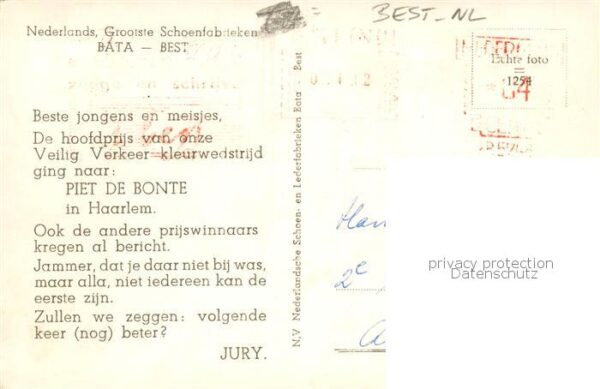 BEST-NL
Nederlands, Grootste Schoenfabrieken
BATA — BEST
Echte foto
1254
04
Beste jongens en meisjes,
De hoofdprijs van onze
Veilig Verkeer kleurwedstrijd
ging naar:
PIET DE BONTE
in Haarlem.
Ook de andere prijswinnaars
kregen al bericht.
Jammer, dat je daar niet bij was,
maar alla, niet iedereen kan de
eerste zijn.
Zullen we zeggen: volgende
keer (nog) beter?
JURY.
N.V. Nederlandsche Schoen- en Lederfabrieken Bata - Best
2e
privacy protection
Datenschutz